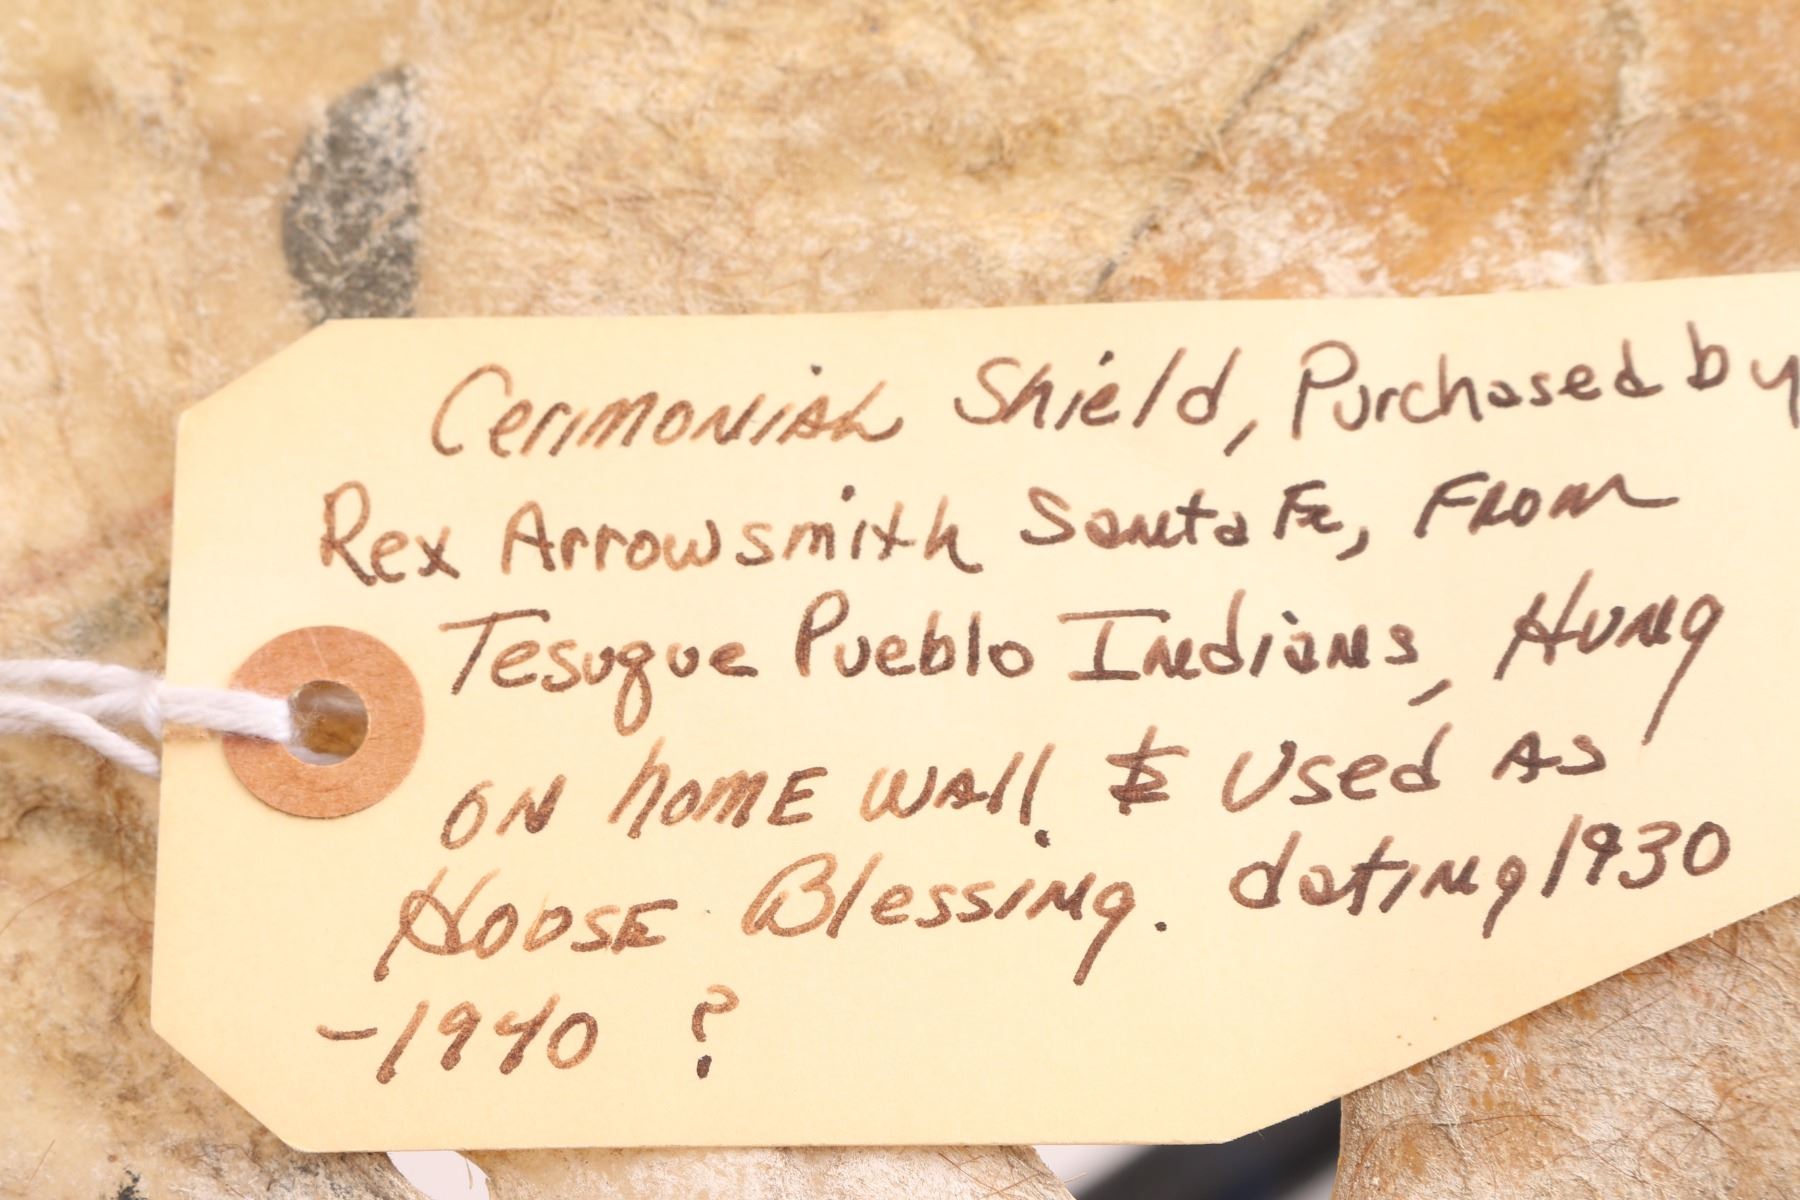 Cerimonial Shield, Purchased by
Rex Arrowsmith Santa Fe, From
Tesuque Pueblo Indians, Hung
on home wall. & Used As
House Blessing. dating 1930
-1940 ?